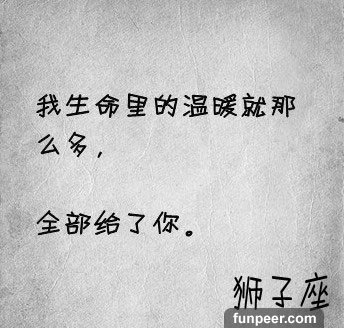 我生命里的温暖就那
么多，
全部给了你。
狮子座
funpeer.com